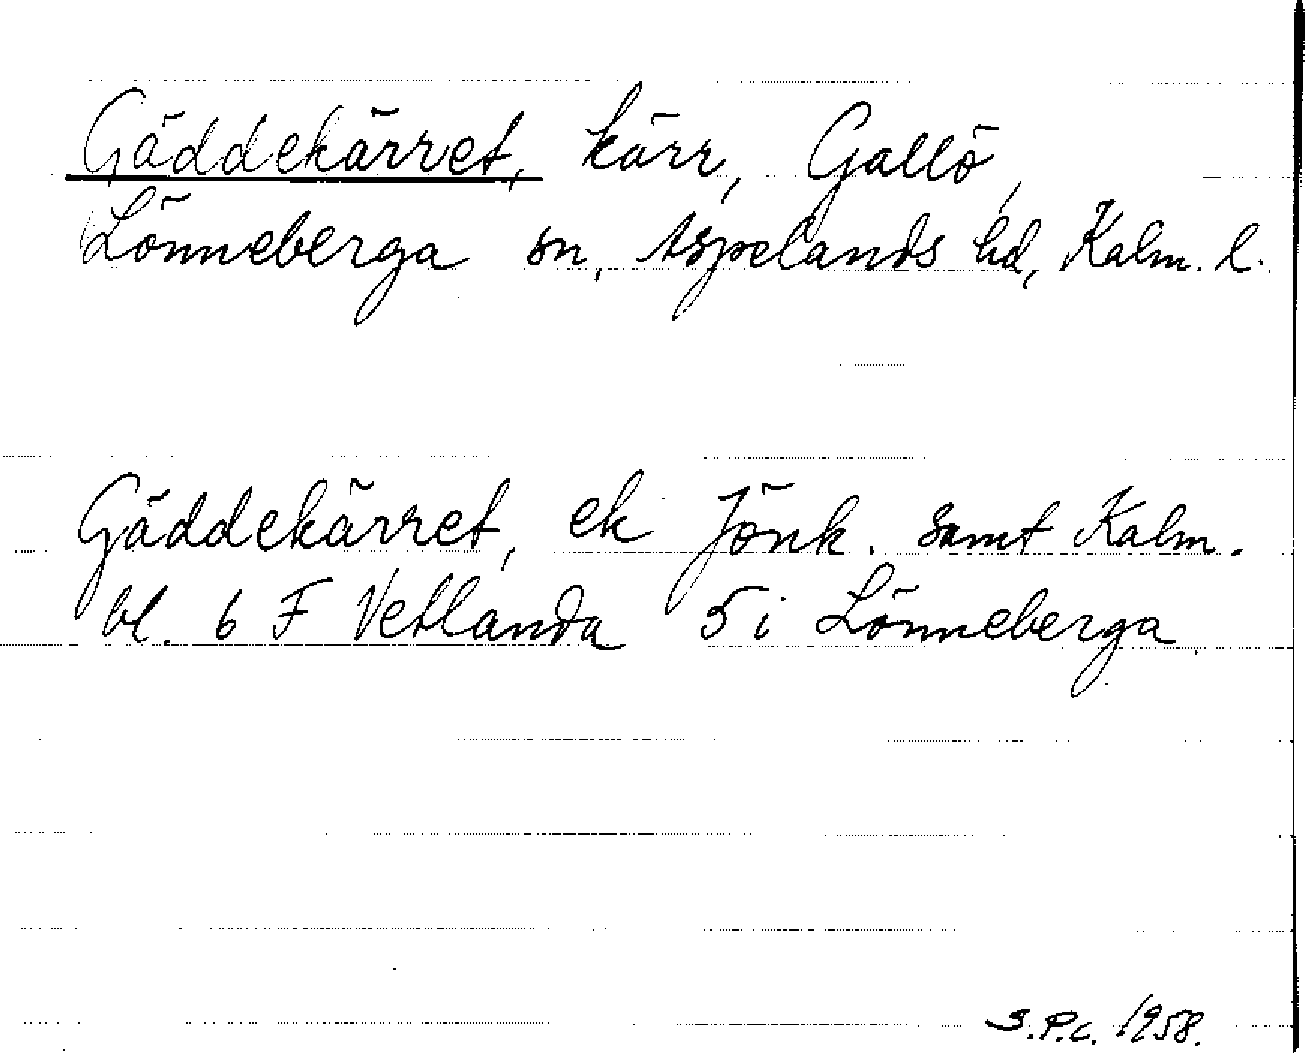 Gäddekärret, kärr, Gallö,
Lönneberga sn, Aspelands hd, Kalm. l.
Gäddekärret, ek Jönk. samt Kalm.
bl. 6 F Vetlanda 5 i Lönneberga
S.P.C. 1958.